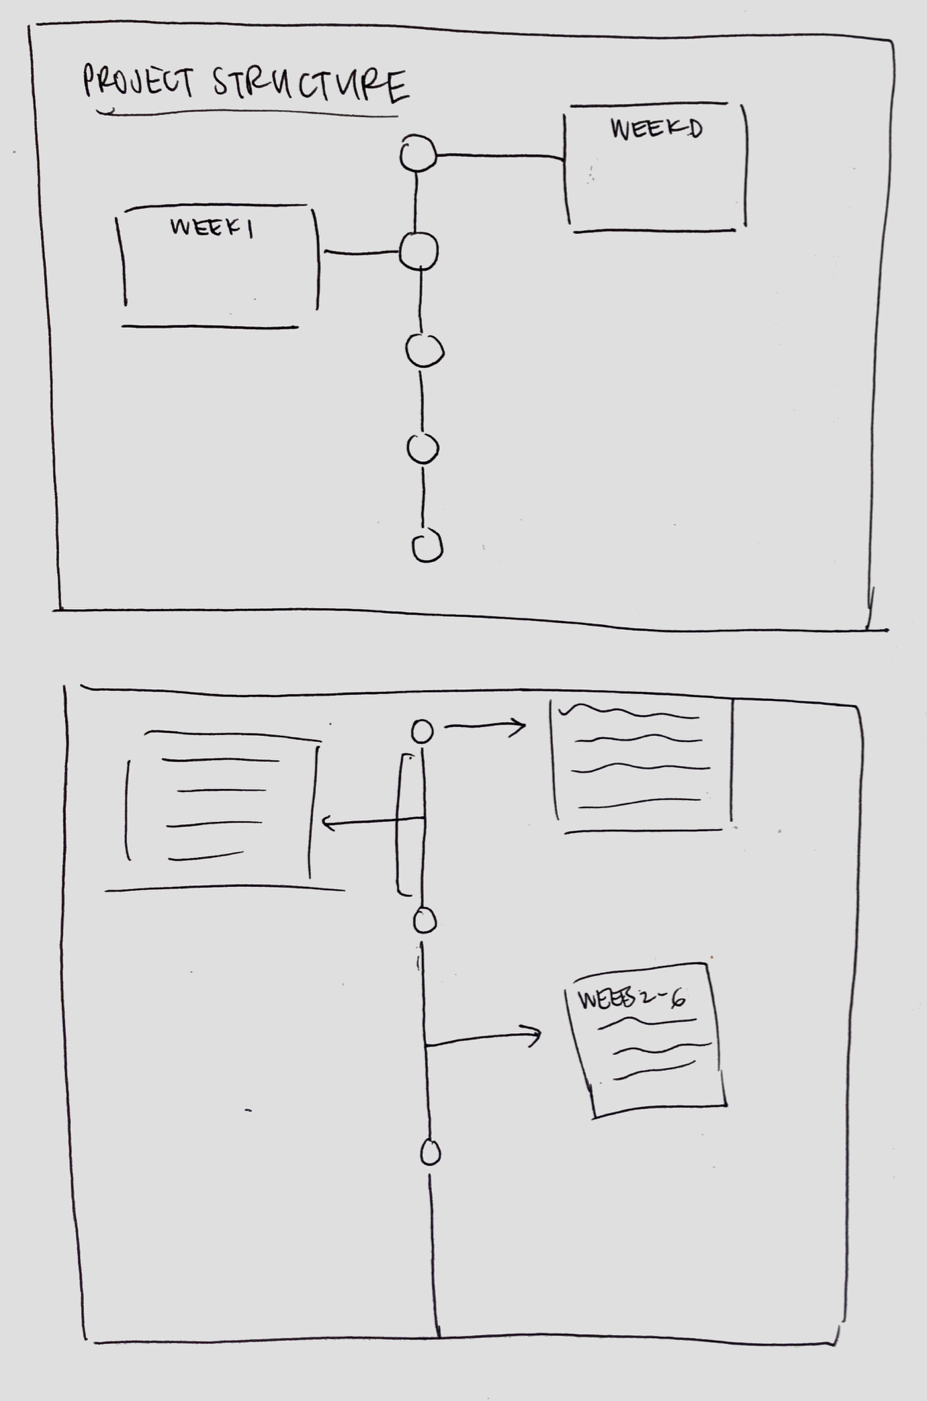 PROJECT STRUCTURE
WEEK 0
WEEK 1
WEEK 2-6